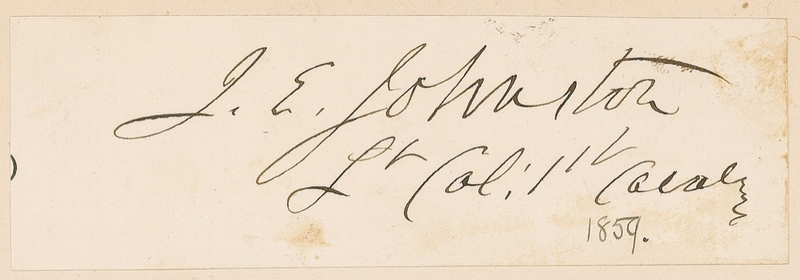 J. E. Johnston
Lt Col: 1st Cavalry
1859.